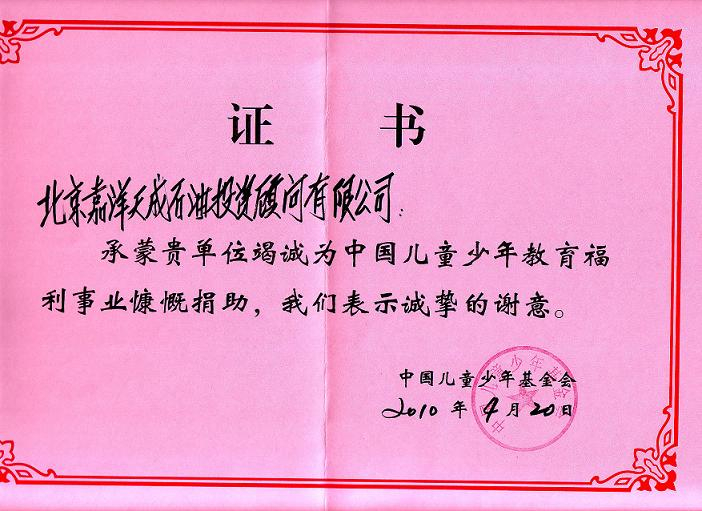 证 书
北京嘉洋天成石油投资顾问有限公司：
承蒙贵单位竭诚为中国儿童少年教育福
利事业慷慨捐助，我们表示诚挚的谢意。
中国儿童少年基金会
2010 年 4 月 20 日
中国儿童少年基金会